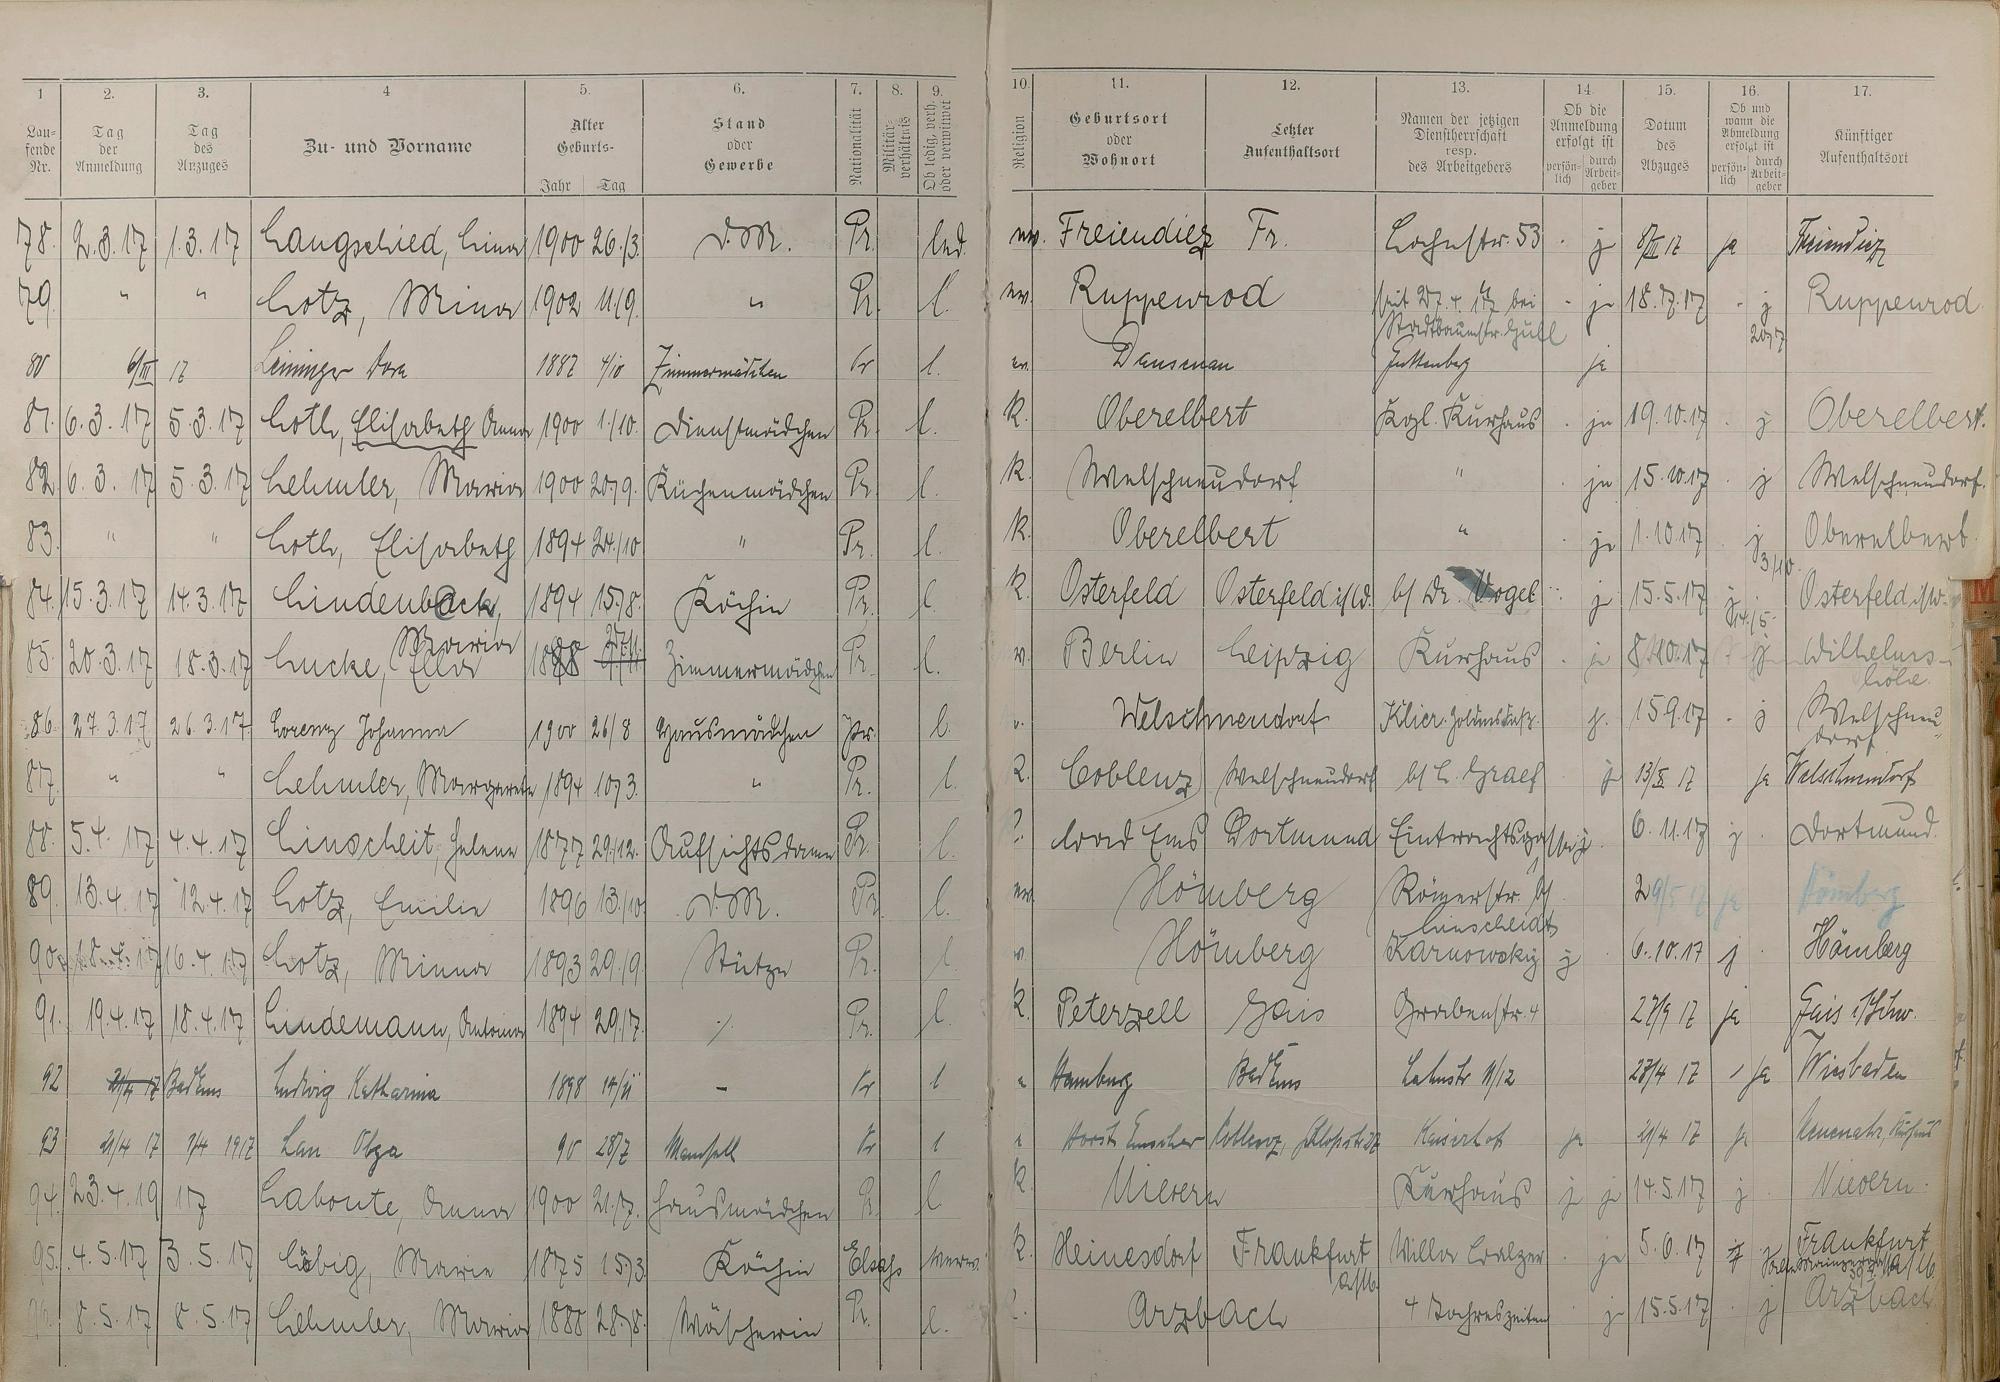 1 2. 3. 4 5. 6. 7. 8. 9. 10. 11. 12. 13. 14. 15. 16. 17.
Lau-fende Nr. Tag der Anmeldung Tag des Anzuges Zu- und Vorname Alter Geburts- Jahr Tag Stand oder Gewerbe Nationalität Militär-verhältnis Ob ledig, verh. oder verwitwet Religion Geburtsort oder Wohnort Letzter Aufenthaltsort Namen der jetzigen Dienstherrschaft resp. des Arbeitgebers Ob die Anmeldung erfolgt ist persön-lich durch Arbeit-geber Datum des Abzuges Ob und wann die Abmeldung erfolgt ist persön-lich durch Arbeit-geber Künftiger Aufenthaltsort
78. 2.3.17 1.3.17 Langschied, Lina 1900 26./3. D.M. Pr. led. ev. Freiendiez Fr. 53 j 17 ja Freiendiez
79. " " Lotz, Mina 1902 11./9. " Pr. l. ev. Ruppenrod seit 27.4.17 bei Stadtbaumstr. j 18.7.17 j 20/7 Ruppenrod
80 6/III 17 Leininger Dora 1887 4/10 Zimmermädchen Pr l. ev. Dausenau ja
81. 6.3.17 5.3.17 Loth, Elisabeth Anna 1900 1./10. Dienstmädchen Pr. l. K. Oberelbert Kgl. Kurhaus ja 19.10.17 j Oberelbert.
82. 6.3.17 5.3.17 Lehmler, Maria 1900 20./9. Küchenmädchen Pr. l. K. Welschneudorf " ja 15.10.17 j Welschneudorf.
83. " " Loth, Elisabeth 1894 24./10 " Pr. l. K. Oberelbert " ja 1.10.17 j 3/10. Oberelbert
84. 15.3.17 14.3.17 Lindenback, Maria 1894 15./8. Köchin Pr. l. K. Osterfeld Osterfeld i/W. b/ Dr. Vogel j 15.5.17 j 14/5. Osterfeld i/W.
85. 20.3.17 18.3.17 Lucke, Ella 1888 Zimmermädchen Pr. l. Berlin Leipzig Kurhaus ja 8.10.17 j Wilhelmshöhe
86. 27.3.17 26.3.17 Lorenz Johanna 1900 26/8 Hausmädchen Pr. l. Welschneudorf Klier. j. 15.9.17 j Welschneudorf
87. " " Lehmler, Margarete 1894 10./3. " Pr. l. K. Coblenz Welschneudorf b/ L. Graef j 13/X 17 ja Welschneudorf
88. 5.4.17 4.4.17 Linscheit, Helene 1877 29./12. Aufsichtsdame Pr. l. Bad Ems Dortmund Eintrachtsgasse j 6.11.17 j Dortmund.
89. 13.4.17 12.4.17 Lotz, Emilie 1896 13./10. D.M. Pr. l. ev. Hömberg Römerstr. b/ Linscheidt 29/5 17 ja Hömberg
90. 18.4.17 16.4.17 Lotz, Minna 1893 29./9. Stütze Pr. l. Hömberg Karnowsky j 6.10.17 j Hömberg
91. 19.4.17 18.4.17 Lindemann, Antonie 1894 29./7. ./. Pr. l. K. Peterzell Gais Grabenstr. 4 17 ja Gais
92 Bad Ems Ludwig Katharina 1898 – Pr l Hamburg Bad Ems Lahnstr 11/12 27/4 17 ja Wiesbaden
93 21/4 17 7/4 1917 Lau Olga 90 28/7 Mamsell Pr l Horst Emscher Coblenz, Kaiserhof ja 21/4 17 ja Neuenahr, Kurhaus
94. 23.4.19 17 Laboute, Anna 1900 21./7. Hausmädchen Pr. l. K. Nievern Kurhaus j ja 14.5.17 j Nievern.
95. 4.5.17 3.5.17 Löbig, Marie 1875 15./3. Köchin Elsass verw. K. Heinesdorf Frankfurt a/M. Villa Balzer ja 5.6.17 j Frankfurt a/M.
96. 8.5.17 8.5.17 Lehmler, Maria 1888 28./8. Wäscherin Pr. l. Arzbach 4 Jahreszeiten ja 15.5.17 j Arzbach